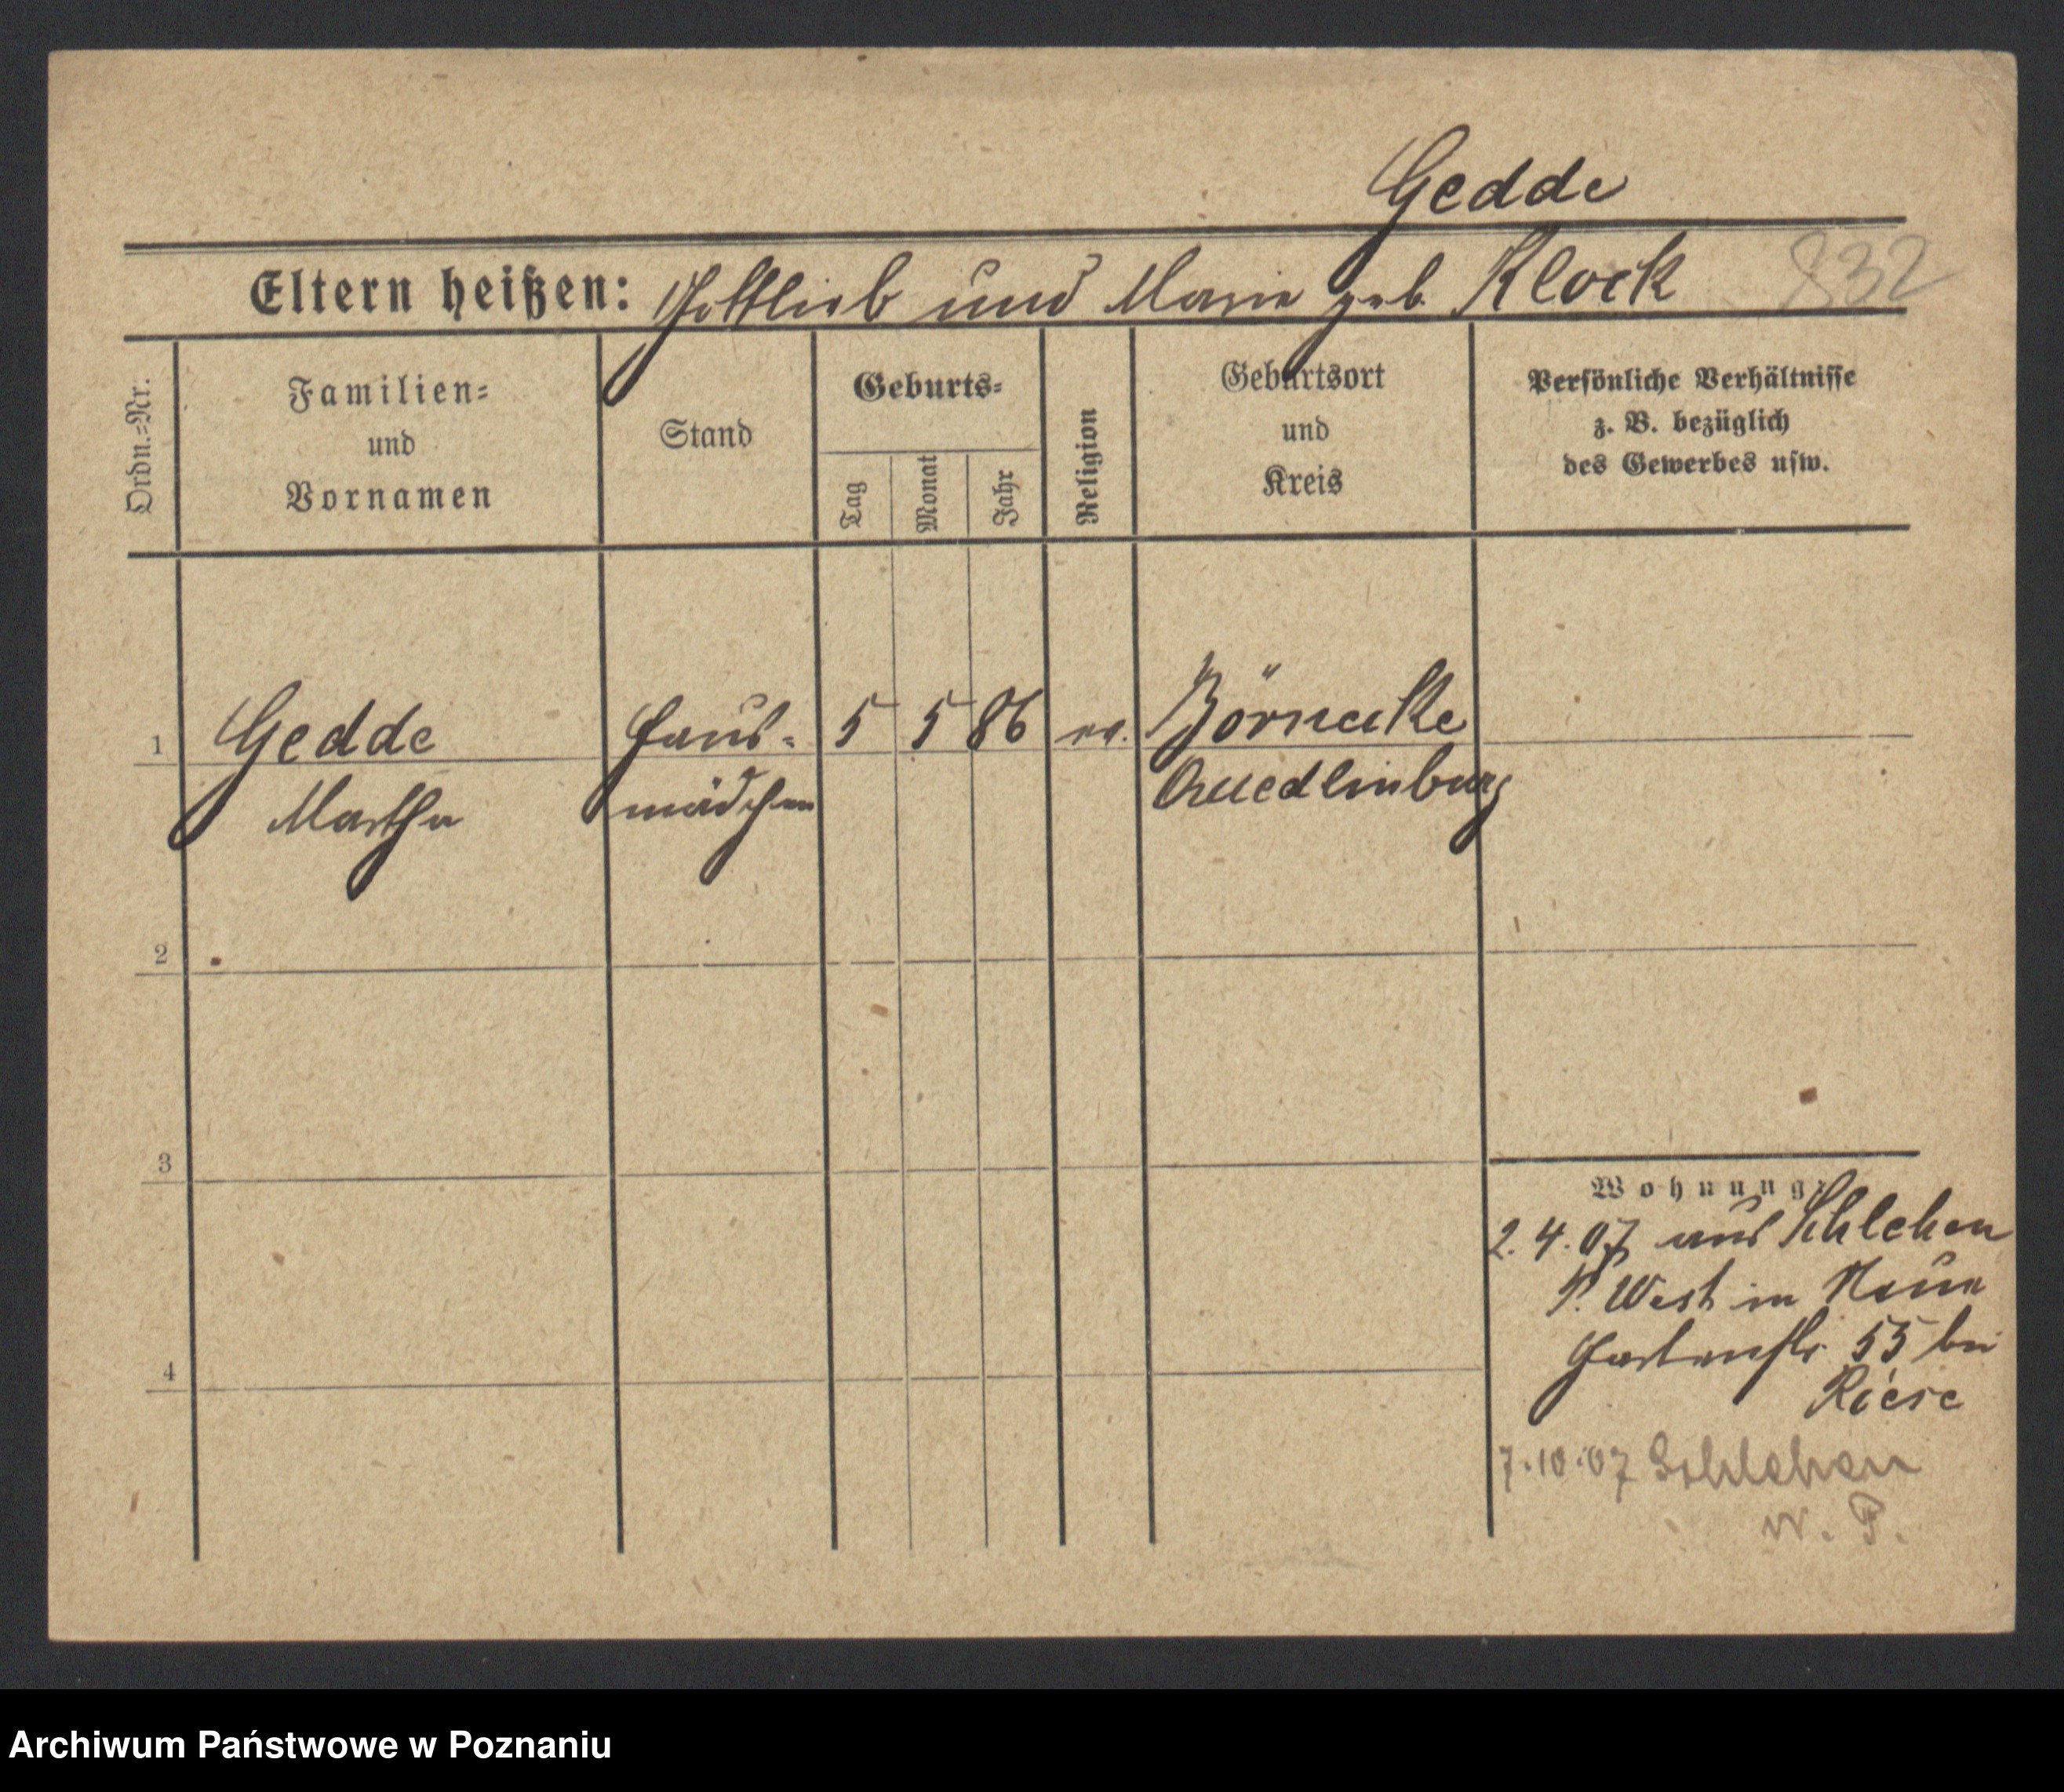 Gedde
Eltern heißen: Gottlieb und Marie geb. Klock 832
Ordn.=Nr.
Familien=
und
Vornamen
Stand
Geburts=
Tag
Monat
Jahr
Religion
Geburtsort
und
Kreis
Persönliche Verhältnisse
z. B. bezüglich
des Gewerbes usw.
1 Gedde Haus= 5 5 86 ev. Börnecke
Martha mädchen Quedlinburg
2
3
Wohnung:
2. 4. 07 aus Schlehen
P. West in Neue
4
Gartenstr. 55 bei
Riese
7.10.07 Schlehen
W. P.
Archiwum Państwowe w Poznaniu